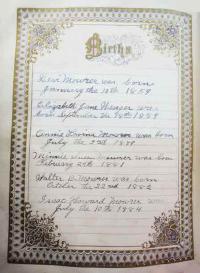 Births
Levi Mourer was born
January the 10th 1859
Elizabeth Jane Heaser was
born September the 28th 1859
Annie Mourer was born
July the 2nd 1879
Minnie Mourer was born
February 24th 1881
Walter B. Mourer was born
October the 22nd 1882
Isaac Howard Mourer was
July the 10th 1884